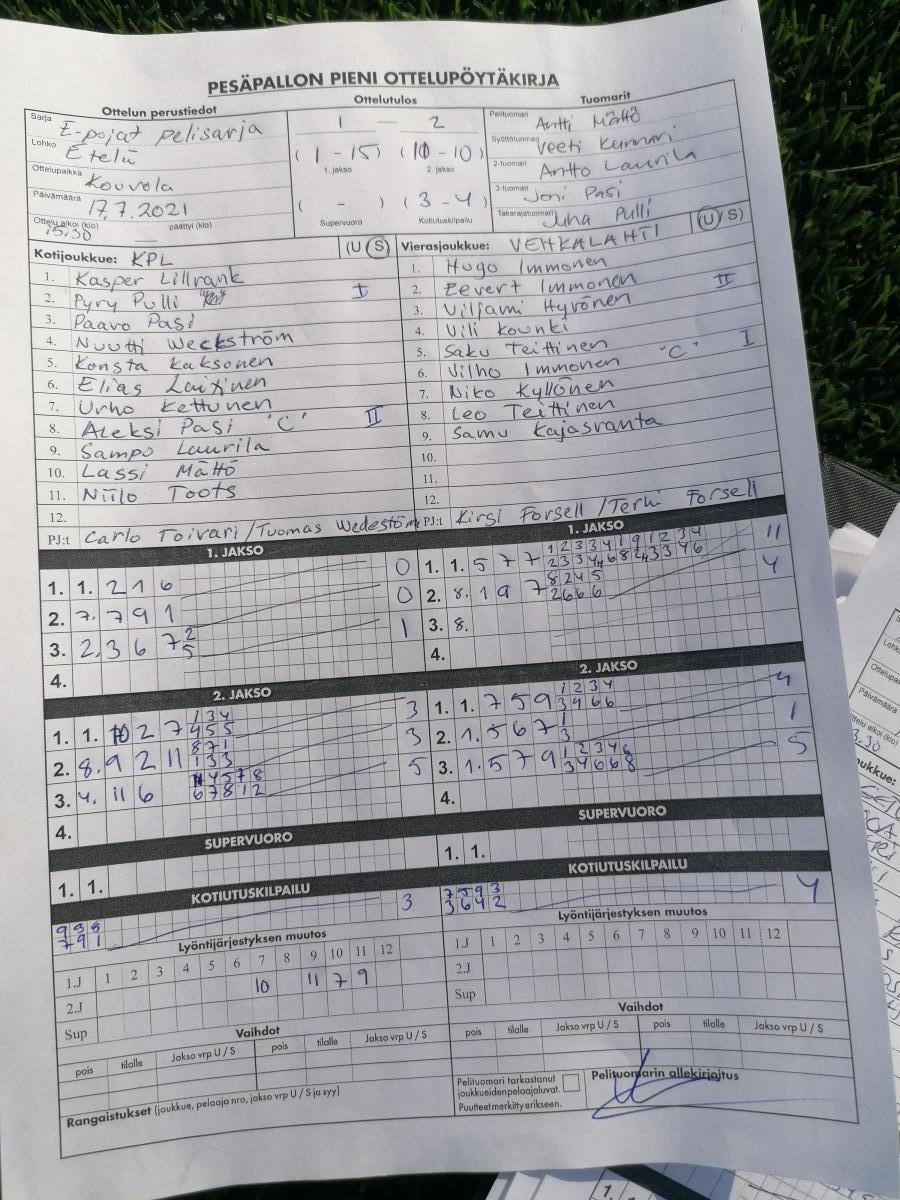 PESÄPALLON PIENI OTTELUPÖYTÄKIRJA
Ottelun perustiedot
Ottelutulos
Tuomarit
Sarja E-pojat pelisarja
Lohko Etelä
Ottelupaikka Kouvola
Päivämäärä 17.7.2021
Ottelu alkoi (klo) 15.30 päättyi (klo)
1 - 2
(1 - 15) (10 - 10)
1. jakso 2. jakso
( - ) (3 - 4)
Supervuoro Kotiutuskilpailu
Pelituomari Antti Mättö
Syöttötuomari Veeti Kunnari
2-tuomari Antto Laurila
3-tuomari Joni Pasi
Takarajatuomari Juha Pulli
Kotijoukkue: KPL (U S)
1. Kasper Lillrank
2. Pyry Pulli I
3. Paavo Pasi
4. Nuutti Weckström
5. Konsta Kaksonen
6. Elias
7. Urho Kettunen
8. Aleksi Pasi "C" II
9. Sampo Laurila
10. Lassi Mättö
11. Niilo Toots
12.
PJ:t Carlo Toivari/Tuomas Wedeström
Vierasjoukkue: VEHKALAHTI (U S)
1. Hugo Immonen
2. Eevert Immonen II
3. Viljami Hyvönen
4. Vili Kounki
5. Saku Teittinen I
6. Vilho Immonen "C"
7. Niko Kyllönen
8. Leo Teittinen
9. Samu Kajasranta
10.
11.
12.
PJ:t Kirsi Forsell/Terhi Forsell
1. JAKSO
1. 1. 2 1 6 0
2. 7. 7 9 1 0
3. 2. 3 6 7 2 1
5
4.
1. JAKSO
1. 1. 5 7 7 11
2. 8. 1 9 7 8 2 4 5 4
2 6 6 6
3. 8.
4.
2. JAKSO
1. 1. 10 2 7 1 3 4 3
4 5 5
2. 8. 9 2 11 8 7 1 3
1 3 3
3. 4. 11 6 5
6 7 8 1 2
4.
2. JAKSO
1. 1. 7 5 9 1 2 3 4 4
3 4 6 6
2. 1. 5 6 7 1 1
3
3. 1. 5 7 9 1 2 3 4 6 5
3 4 6 6 8
4.
SUPERVUORO
1. 1.
SUPERVUORO
1. 1.
KOTIUTUSKILPAILU
9 3 8 3
7 9 1
KOTIUTUSKILPAILU
7 5 9 3 4
3 6 4 2
Lyöntijärjestyksen muutos
1.J 1 2 3 4 5 6 7 8 9 10 11 12
2.J 10 11 7 9
Sup
Lyöntijärjestyksen muutos
1.J 1 2 3 4 5 6 7 8 9 10 11 12
2.J
Sup
Vaihdot
pois tilalle Jakso vrp U / S pois tilalle Jakso vrp U / S
Vaihdot
pois tilalle Jakso vrp U / S pois tilalle Jakso vrp U / S
Rangaistukset (joukkue, pelaaja nro, jakso vrp U / S ja syy)
Pelituomari tarkastanut
joukkueiden pelaajaluvat.
Puutteet merkitty erikseen.
Pelituomarin allekirjoitus